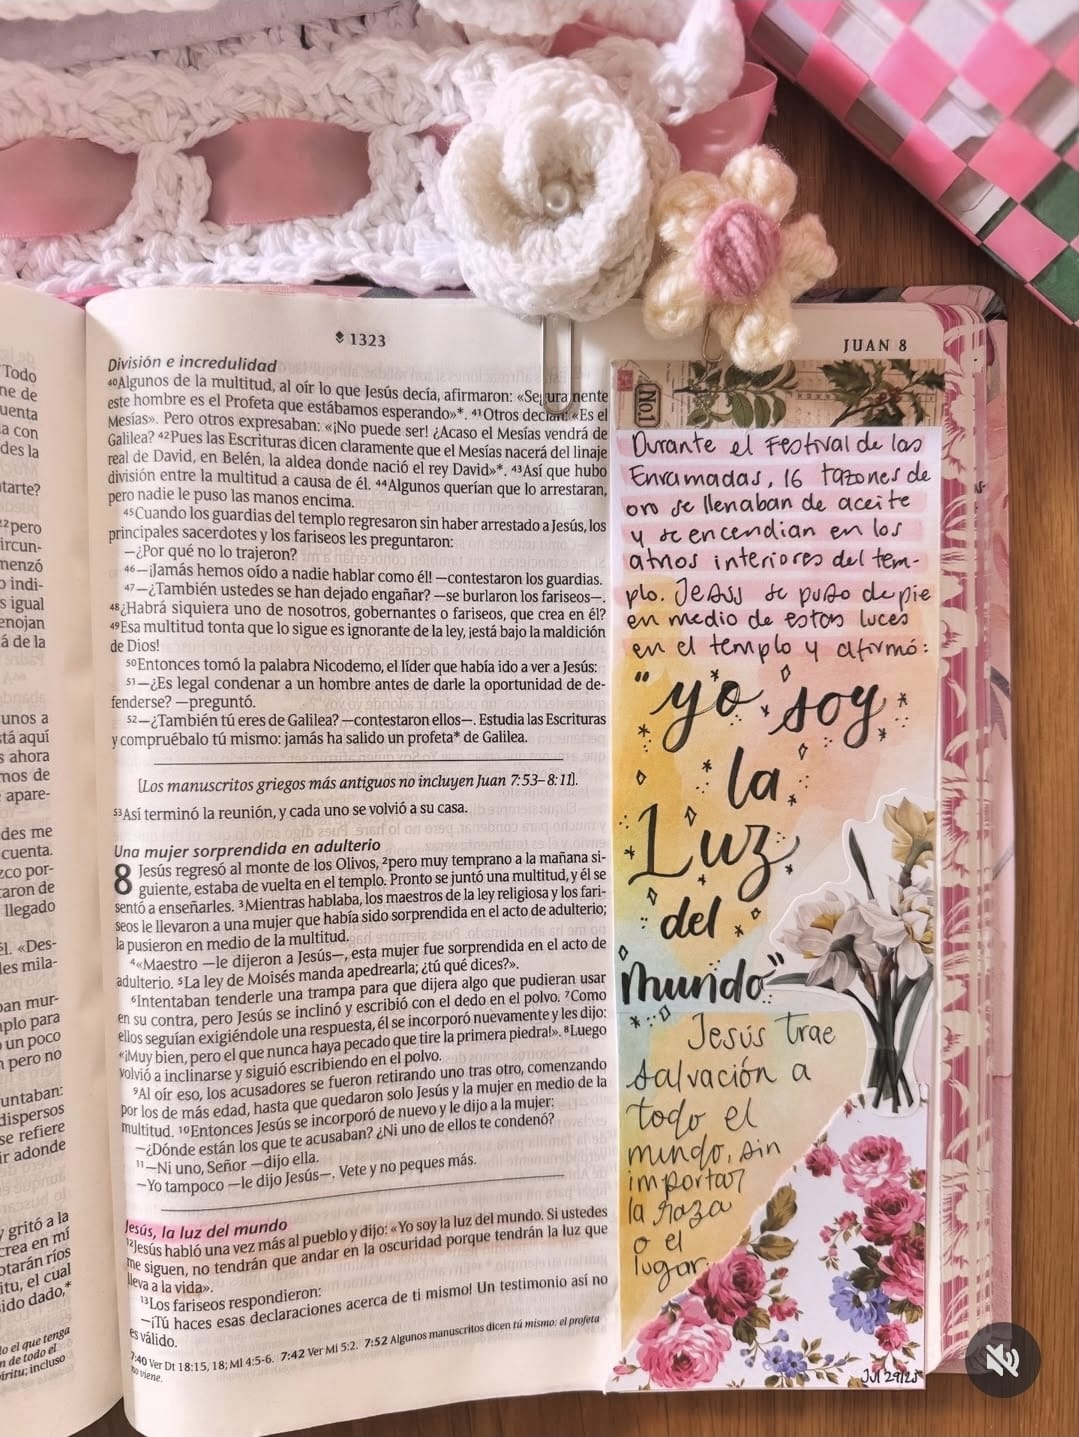 Todo
ne de
uenta
a con
des la
tarte?
²²pero
ircun-
menzó
o indi-
s igual
enojan
á de la
unos a
stá aquí
s ahora
mos de
apare-
des me
cuenta.
zco por-
taron de
llegado
«Des-
les mila-
ban mur-
plo para
un poco
pero no
untaban:
dispersos
se refiere
ir adonde
y gritó a la
crea en mí
otarán ríos
itu, el cual
ido dado,*
lo el que tenga
n de todo el
íritu; incluso
1323
División e incredulidad
⁴⁰Algunos de la multitud, al oír lo que Jesús decía, afirmaron: «Seguramente
este hombre es el Profeta que estábamos esperando»*. ⁴¹Otros decían: «Es el
Mesías». Pero otros expresaban: «¡No puede ser! ¿Acaso el Mesías vendrá de
Galilea? ⁴²Pues las Escrituras dicen claramente que el Mesías nacerá del linaje
real de David, en Belén, la aldea donde nació el rey David»*. ⁴³Así que hubo
división entre la multitud a causa de él. ⁴⁴Algunos querían que lo arrestaran,
pero nadie le puso las manos encima.
⁴⁵Cuando los guardias del templo regresaron sin haber arrestado a Jesús, los
principales sacerdotes y los fariseos les preguntaron:
—¿Por qué no lo trajeron?
⁴⁶—¡Jamás hemos oído a nadie hablar como él! —contestaron los guardias.
⁴⁷—¿También ustedes se han dejado engañar? —se burlaron los fariseos—.
⁴⁸¿Habrá siquiera uno de nosotros, gobernantes o fariseos, que crea en él?
⁴⁹Esa multitud tonta que lo sigue es ignorante de la ley, ¡está bajo la maldición
de Dios!
⁵⁰Entonces tomó la palabra Nicodemo, el líder que había ido a ver a Jesús:
⁵¹—¿Es legal condenar a un hombre antes de darle la oportunidad de de-
fenderse? —preguntó.
⁵²—¿También tú eres de Galilea? —contestaron ellos—. Estudia las Escrituras
y compruébalo tú mismo: jamás ha salido un profeta* de Galilea.
[Los manuscritos griegos más antiguos no incluyen Juan 7:53–8:11].
⁵³Así terminó la reunión, y cada uno se volvió a su casa.
Una mujer sorprendida en adulterio
8 Jesús regresó al monte de los Olivos, ²pero muy temprano a la mañana si-
guiente, estaba de vuelta en el templo. Pronto se juntó una multitud, y él se
sentó a enseñarles. ³Mientras hablaba, los maestros de la ley religiosa y los fari-
seos le llevaron a una mujer que había sido sorprendida en el acto de adulterio;
la pusieron en medio de la multitud.
⁴«Maestro —le dijeron a Jesús—, esta mujer fue sorprendida en el acto de
adulterio. ⁵La ley de Moisés manda apedrearla; ¿tú qué dices?».
⁶Intentaban tenderle una trampa para que dijera algo que pudieran usar
en su contra, pero Jesús se inclinó y escribió con el dedo en el polvo. ⁷Como
ellos seguían exigiéndole una respuesta, él se incorporó nuevamente y les dijo:
«¡Muy bien, pero el que nunca haya pecado que tire la primera piedra!». ⁸Luego
volvió a inclinarse y siguió escribiendo en el polvo.
⁹Al oír eso, los acusadores se fueron retirando uno tras otro, comenzando
por los de más edad, hasta que quedaron solo Jesús y la mujer en medio de la
multitud. ¹⁰Entonces Jesús se incorporó de nuevo y le dijo a la mujer:
—¿Dónde están los que te acusaban? ¿Ni uno de ellos te condenó?
¹¹—Ni uno, Señor —dijo ella.
—Yo tampoco —le dijo Jesús—. Vete y no peques más.
Jesús, la luz del mundo
¹²Jesús habló una vez más al pueblo y dijo: «Yo soy la luz del mundo. Si ustedes
me siguen, no tendrán que andar en la oscuridad porque tendrán la luz que
lleva a la vida».
¹³Los fariseos respondieron:
—¡Tú haces esas declaraciones acerca de ti mismo! Un testimonio así no
es válido.
7:40 Ver Dt 18:15, 18; Ml 4:5-6. 7:42 Ver Mi 5:2. 7:52 Algunos manuscritos dicen tú mismo: el profeta
no viene.
JUAN 8
No.1
Durante el Festival de las
Enramadas, 16 tazones de
oro se llenaban de aceite
y se encendian en los
atrios interiores del tem-
plo. Jesús se puso de pie
en medio de estas luces
en el templo y afirmó:
"yo soy
la
Luz
del
mundo"
Jesús trae
salvación a
todo el
mundo, sin
importar
la raza
o el
lugar.
Jul 29/25